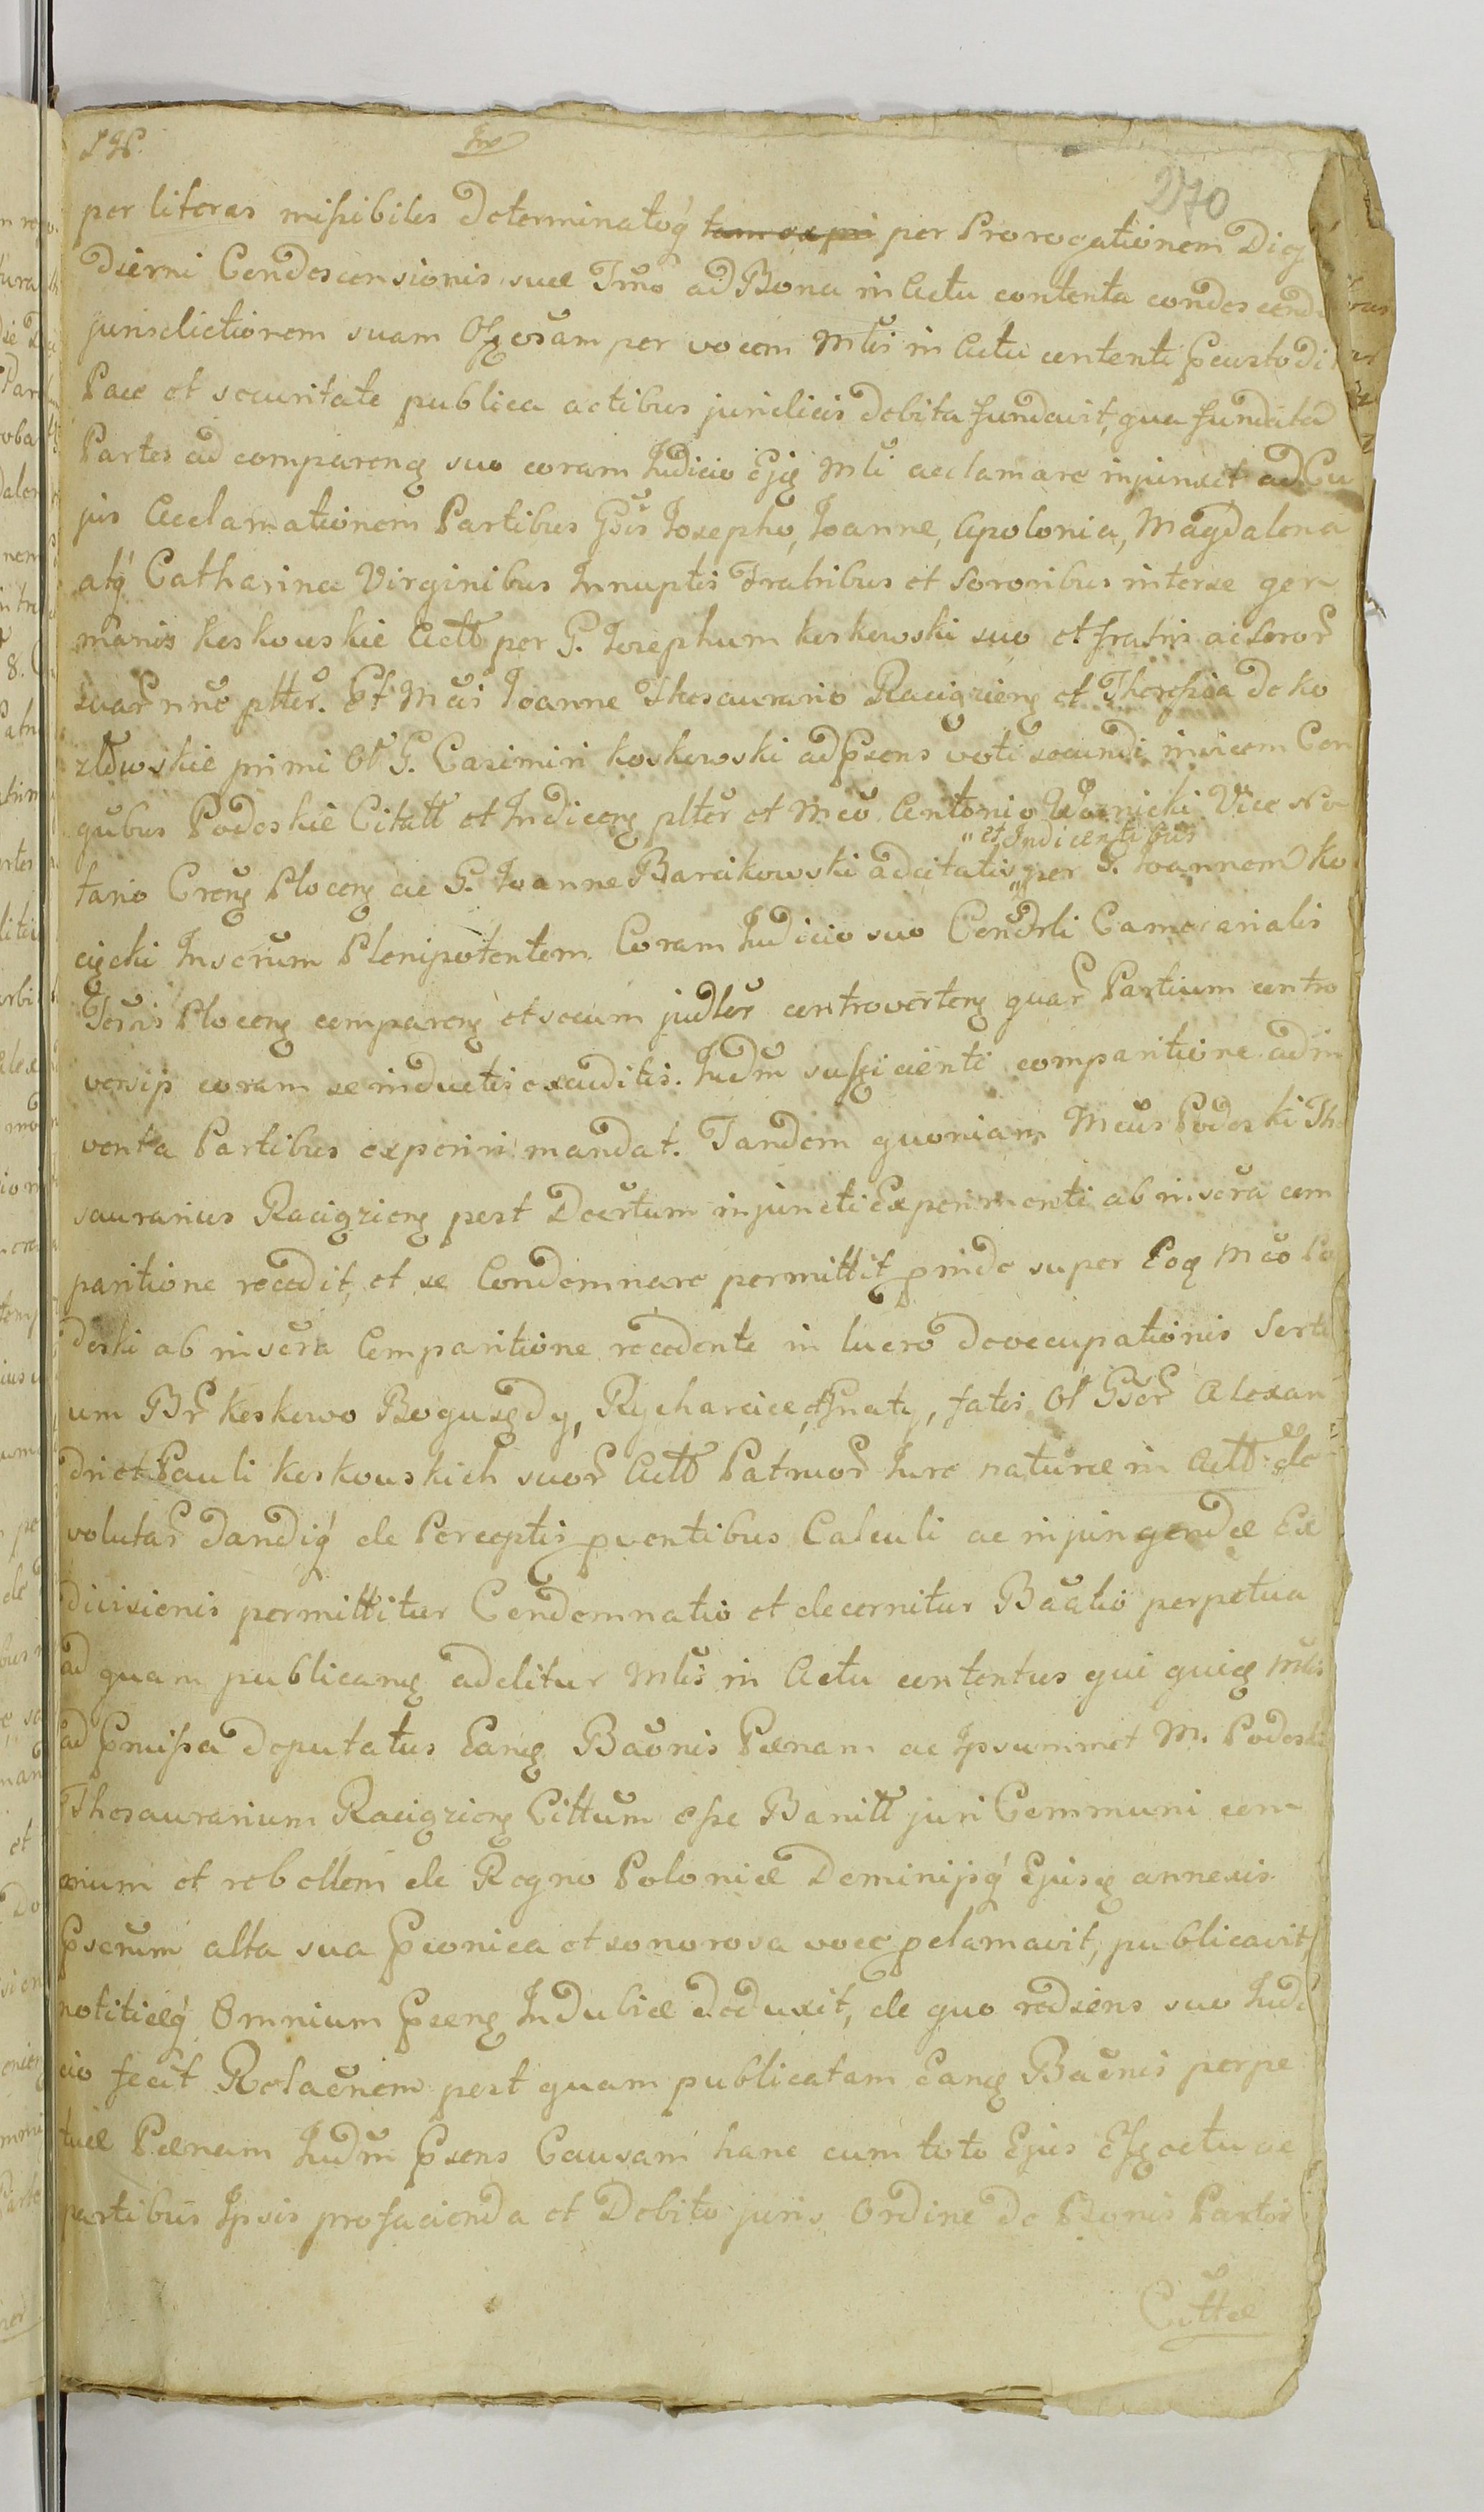 270
per literas missibiles Determinatoq́ tam ex pri per Prorogationem Dieq
dierni Condescensionis suæ Imo ad Bona in Actu contenta condescend
jurisdictionem suam Offosam per vocem Mlis in Actu contenti Pcustodi
Pace et securitate publica actibus juridicis debita fundavit, qua fundata
Partes ad comparenq suo coram Judicio Ejq Mli acclamare injunxit ad Cu
jus Acclamationem Partibus Gsis Josepho, Joanne, Apolonia, Magdalena
atq́ Catharina Virginibus Innuptis Fratribus et Sororibus interse ger
manis Koskowskie Actt per G. Josephum Koskowski suo et fratris ac Soror
suar nne pltter. Et Mcis Joanne Thesaurario Raciązienq et Theresia de Ko
złowskie primi Et G. Casimiri Koskowski ad Psens voti secundi invicem Con
gubus Podoskie Citatt et Indicenq plter et Mco Antonio Woźnicki Vice No
"et Indicentibus
tario Crenq Plocenq ac G. Joanne Barcikowski adcitatis " per G. Joannem Ko
cięcki Inserum Plenipotentem Coram Judicio suo Condrli Camerarialis
Terris Plocenq comparenq et secum judler controvertenq quar Partium contro
versijs coram se inductis exauditis. Judm sufficienti comparitione adin
venta Partibus experiri mandat. Tandem quoniam Mcus Podoski The
saurarius Raciązienq post Decrtum injuncti Experimenti ab insera com
paritione recedit, et se Condemnare permittit pinde super Eoq Mco Po
doski ab insera Comparitione recedente in lucro Deoccupationis Sorti
um Br Koskowo Bogusędy, Rycharcice, et Gnaty, fatis Ol Gsor Alexan
dri et Pauli Koskowskich suor Actt Patruor Jure naturæ in Actt de
volutar dandiq́ de Perceptis pventibus Calculi ac injungendæ Ex
divisionis permittitur Condemnatio et decernitur Baatio perpetua
ad quam publicanq additur Mlis in Actu contentus qui quiq Mlis
ad Pmissa deputatus Eanq Baonis Pænam ac Ipsummet M. Podoski
Thesaurarium Raciązienq Cittum esse Banitt juri Communi com
mum et rebellem de Regno Poloniæ Dominijsq́ Ejusq annexis
Pserum alta sua Pconica et sonorosa voce pclamavit, publicavit,
notitiæq́ Omnium Pcenq Indubiæ deduxit, de quo rediens suo Judi
cio fecit Relaonem post quam publicatam Eanq Baonis perpe
tuæ Pænam Judm Psens Causam hanc cum toto Ejus Effectu ac
partibus Ipsis profacienda et Debito juris Ordine de Bonis Partis
Cittæ